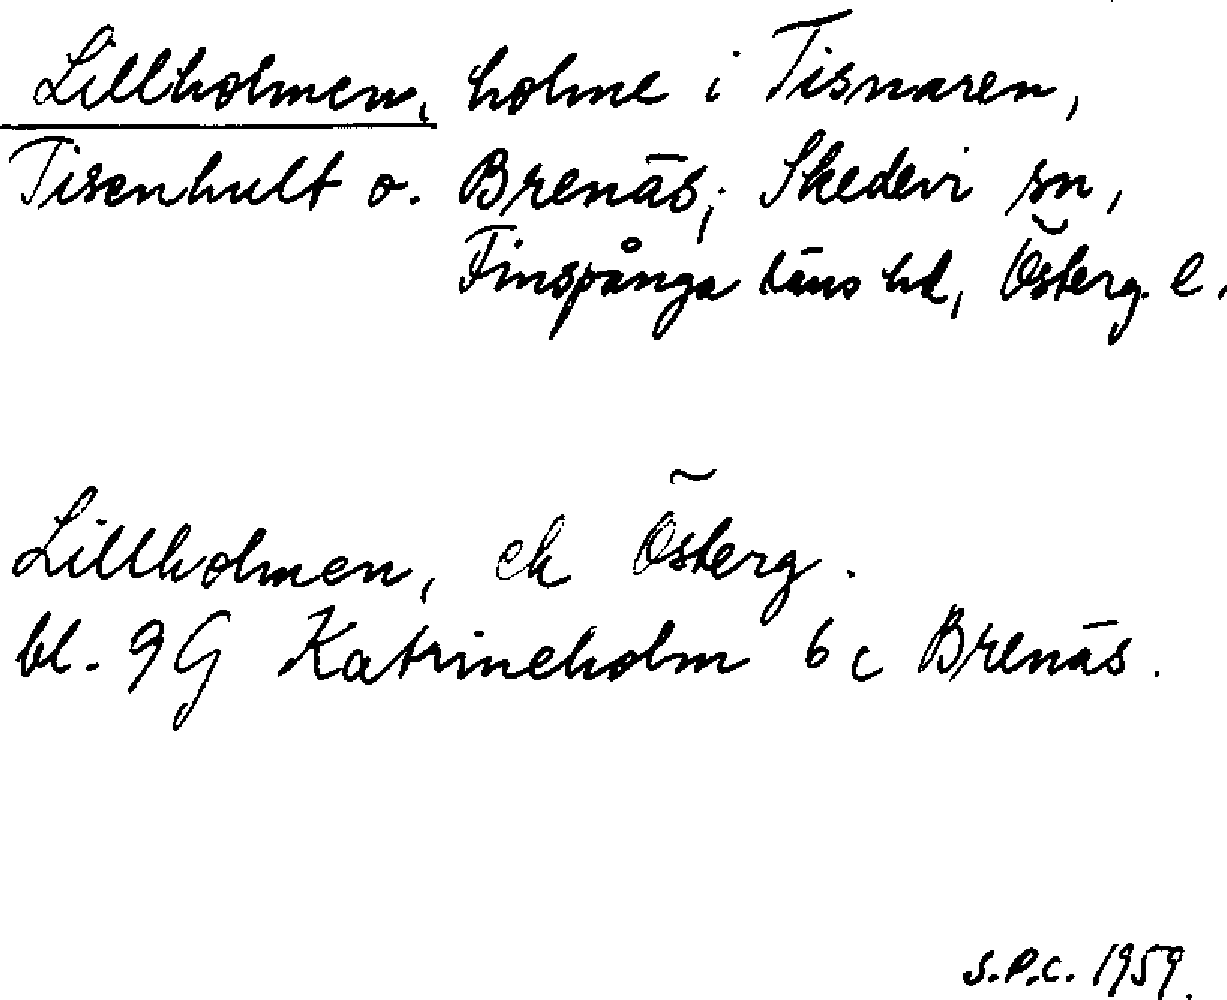 Lillholmen, holme i Tisnaren,
Tisenhult o. Brenäs; Skedevi sn,
Finspånga läns hd, Österg. l.
Lillholmen, ek Österg.
bl. 9G Katrineholm 6c Brenäs.
S.P.C. 1959.